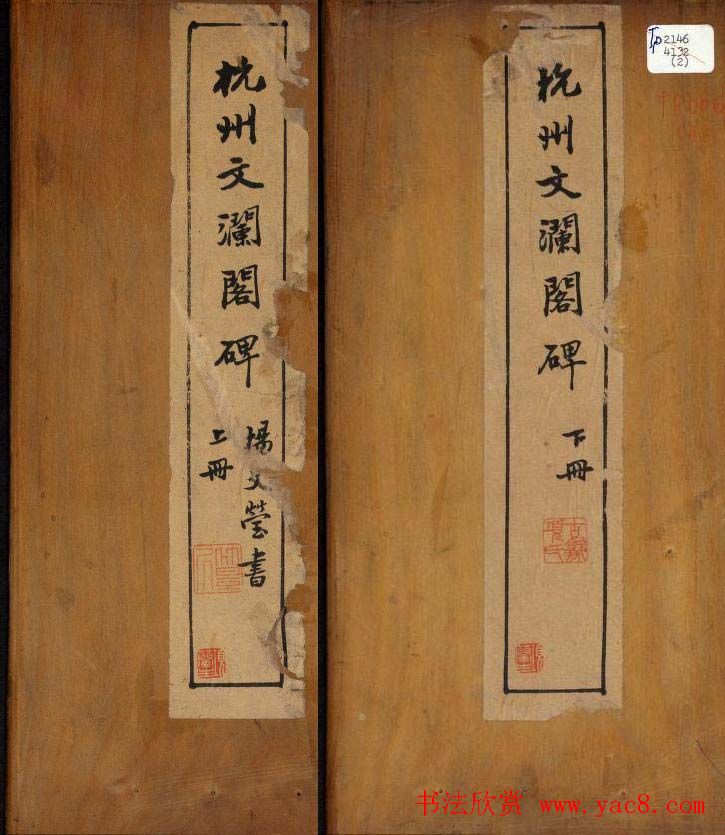 杭州文瀾閣碑
楊文瑩書
上冊
杭州文瀾閣碑
下冊
2146
4132
(2)
书法欣赏 www.yac8.com